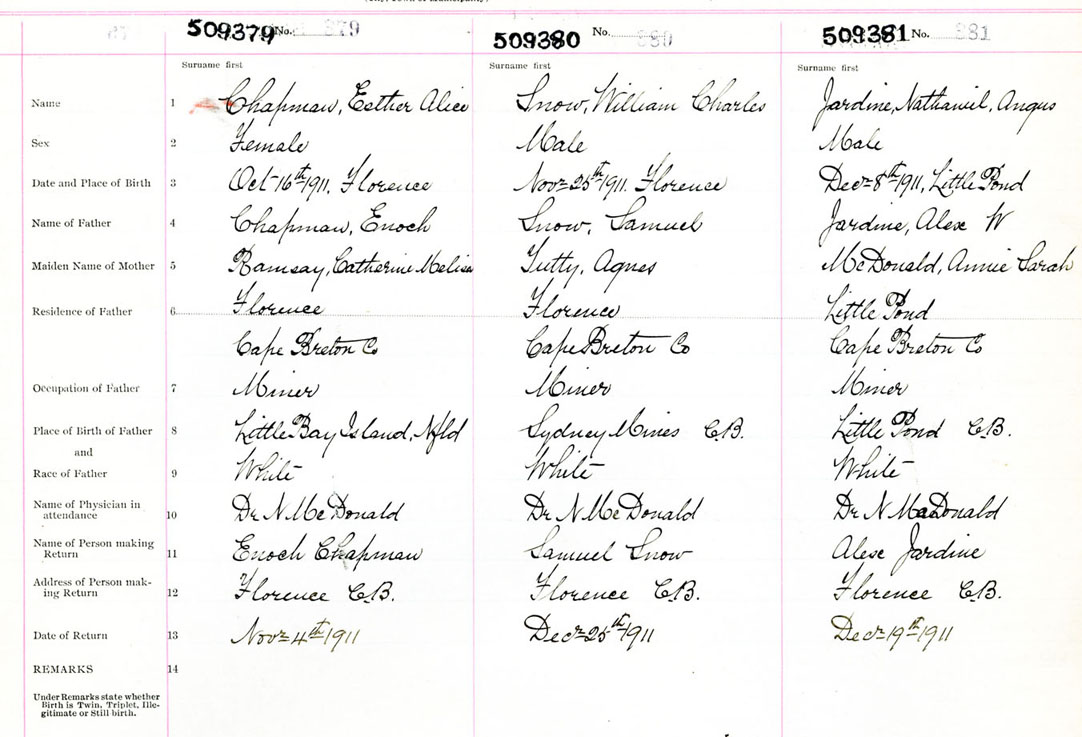 509379 No. 879 509380 No. 880 509381 No. 881
Surname first Surname first Surname first
Name 1 Chapman, Esther Alice Snow, William Charles Jardine, Nathaniel, Angus
Sex 2 Female Male Male
Date and Place of Birth 3 Oct 16th 1911, Florence Novr 25th 1911. Florence Decr 8th 1911, Little Pond
Name of Father 4 Chapman, Enoch Snow, Samuel Jardine, Alex W
Maiden Name of Mother 5 Ramsay, Catherine Melissa Tutty, Agnes McDonald, Annie Sarah
Residence of Father 6 Florence Florence Little Pond
Cape Breton Co Cape Breton Co Cape Breton Co
Occupation of Father 7 Miner Miner Miner
Place of Birth of Father 8 Little Bay Island, Nfld Sydney Mines C.B. Little Pond C.B.
and
Race of Father 9 White White White
Name of Physician in
attendance 10 Dr N McDonald Dr N McDonald Dr N MacDonald
Name of Person making
Return 11 Enoch Chapman Samuel Snow Alex Jardine
Address of Person mak-
ing Return 12 Florence C.B. Florence C.B. Florence C.B.
Date of Return 13 Novr 4th 1911 Decr 25th 1911 Decr 19th 1911
REMARKS 14
Under Remarks state whether
Birth is Twin, Triplet, Ille-
gitimate or Still birth.